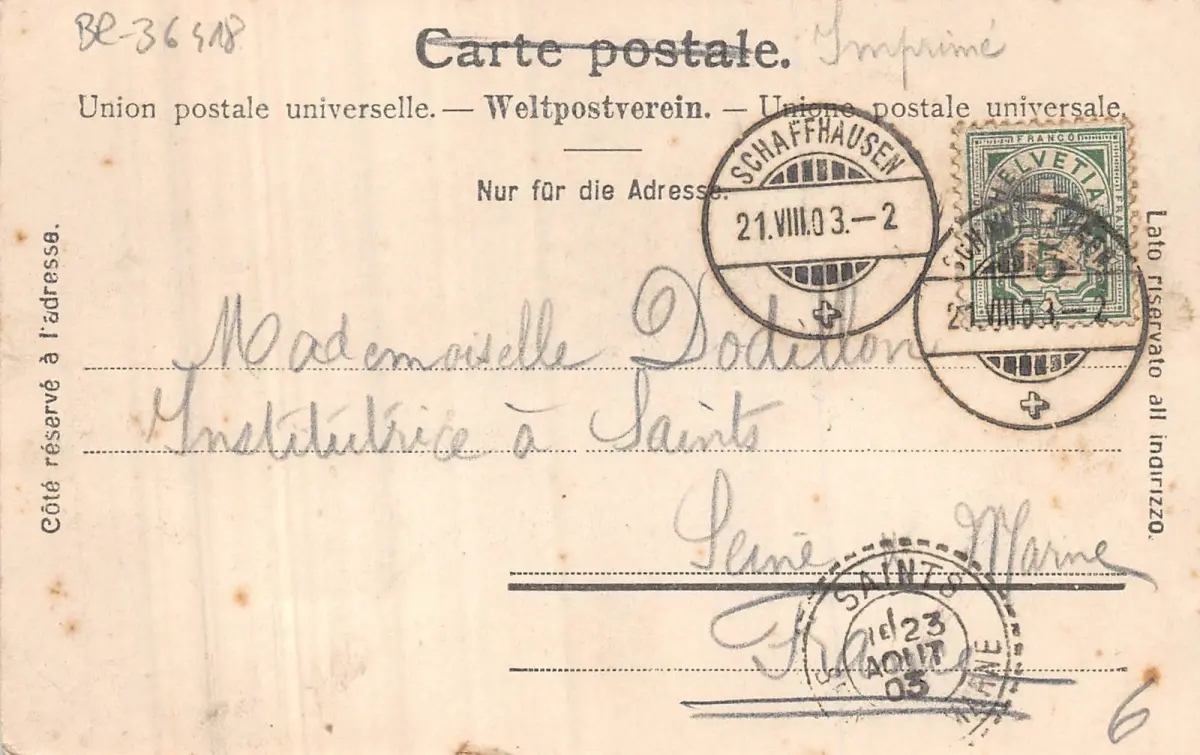 BR-36418
Carte postale. Imprimé
Union postale universelle. — Weltpostverein. — Unione postale universale.
Nur für die Adresse.
SCHAFFHAUSEN
21.VIII.03.–2
FRANCO
HELVETIA
FRANCO
5
SCHAFFHAUSEN
21.VIII.03.–2
Côté réservé à l'adresse.
Lato riservato all indirizzo.
Mademoiselle Dodillon
Institutrice à Saints
Seine & Marne
France
SAINTS
23
AOUT
03
MARNE
6